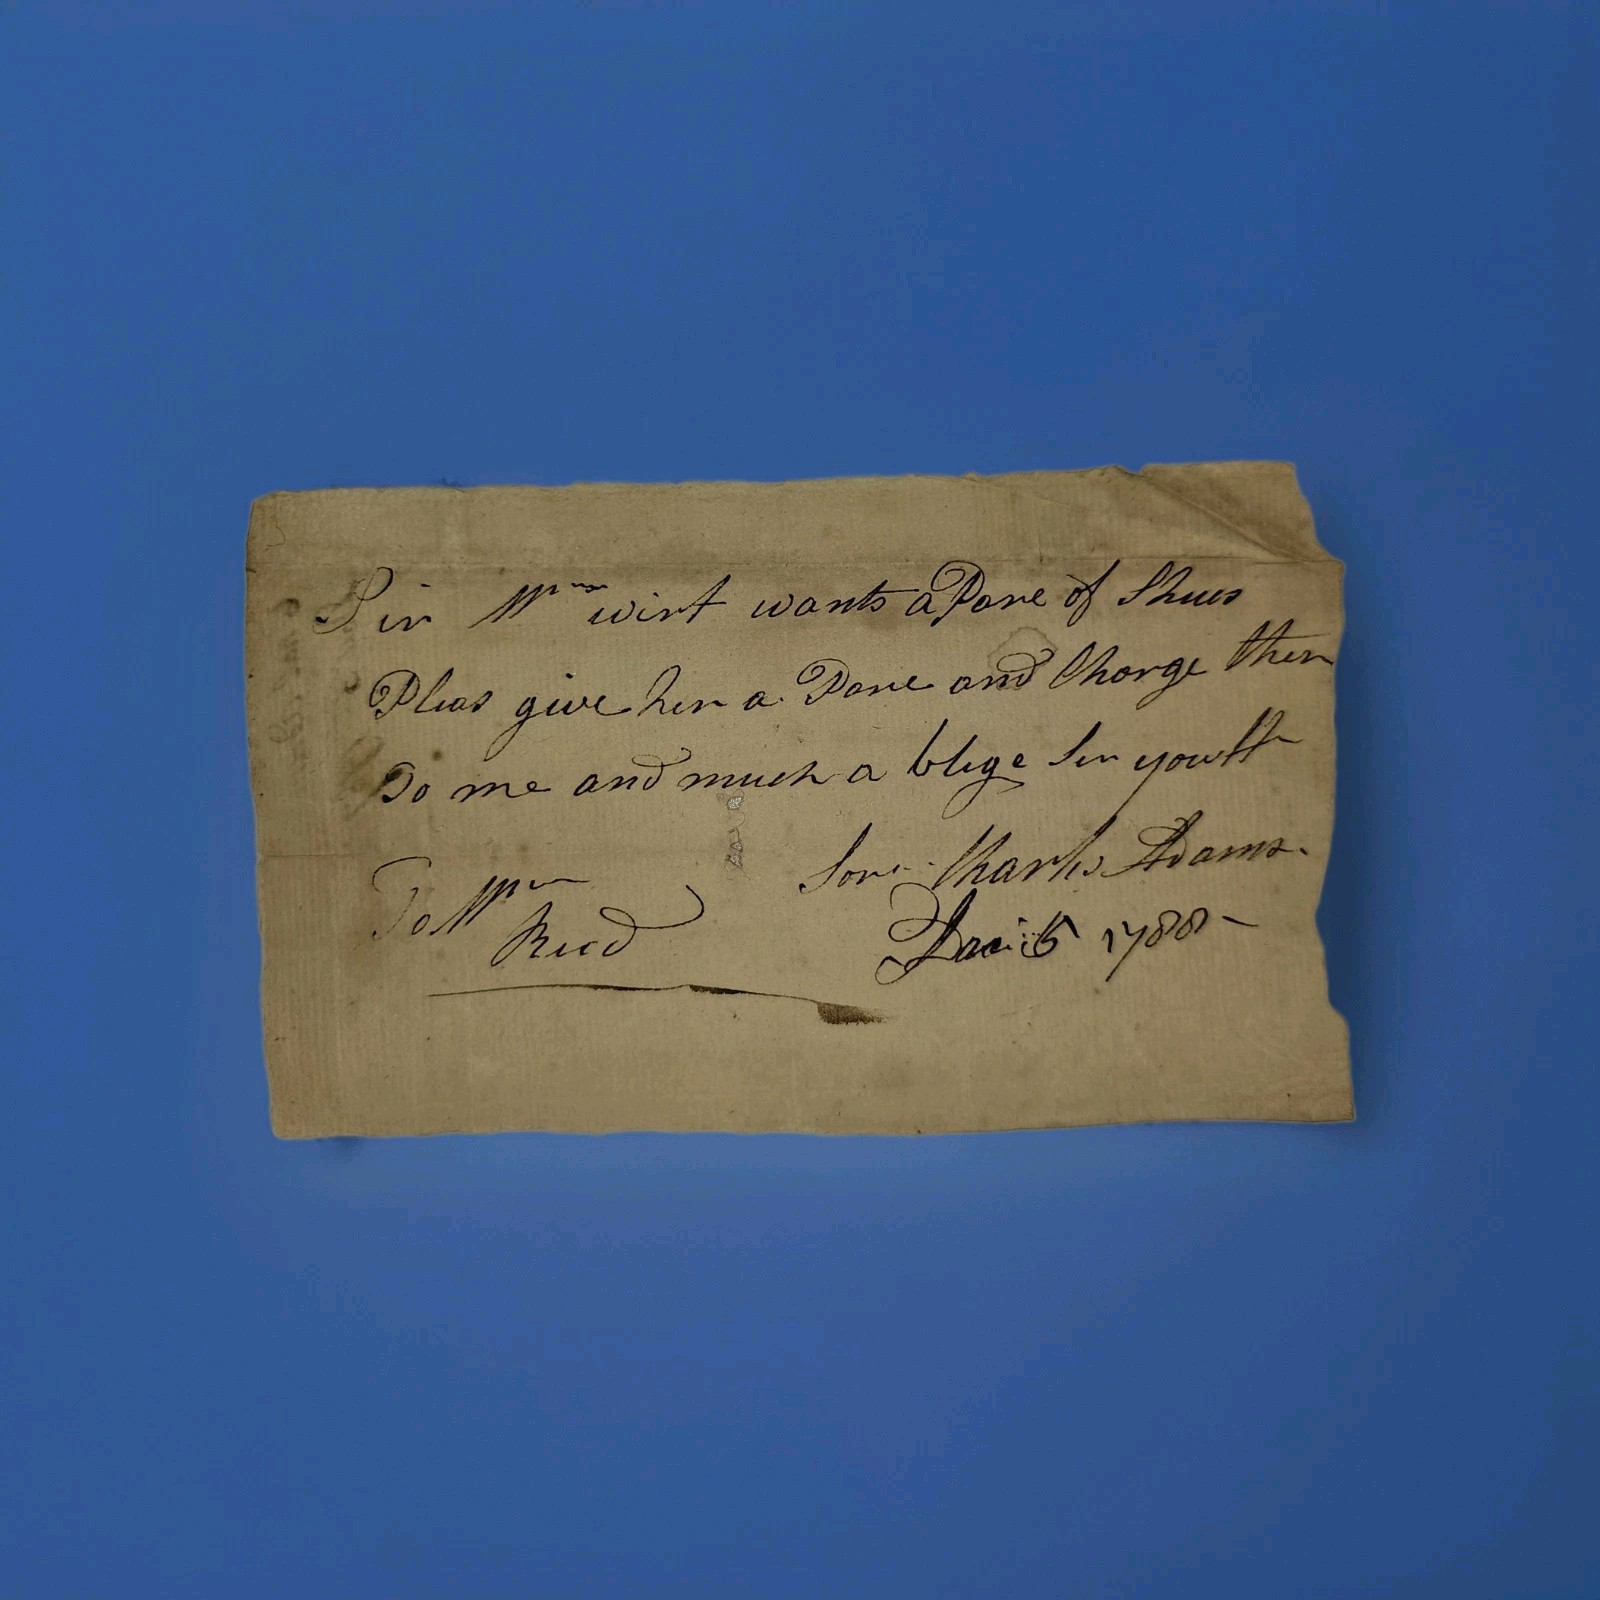 Sir Mrs wirt wants a Pare of Shues
Pleas give her a Pare and Charge them
To me and much a blige Sir your H
Serv. Charls Adams.
To Mr
Reed
1788